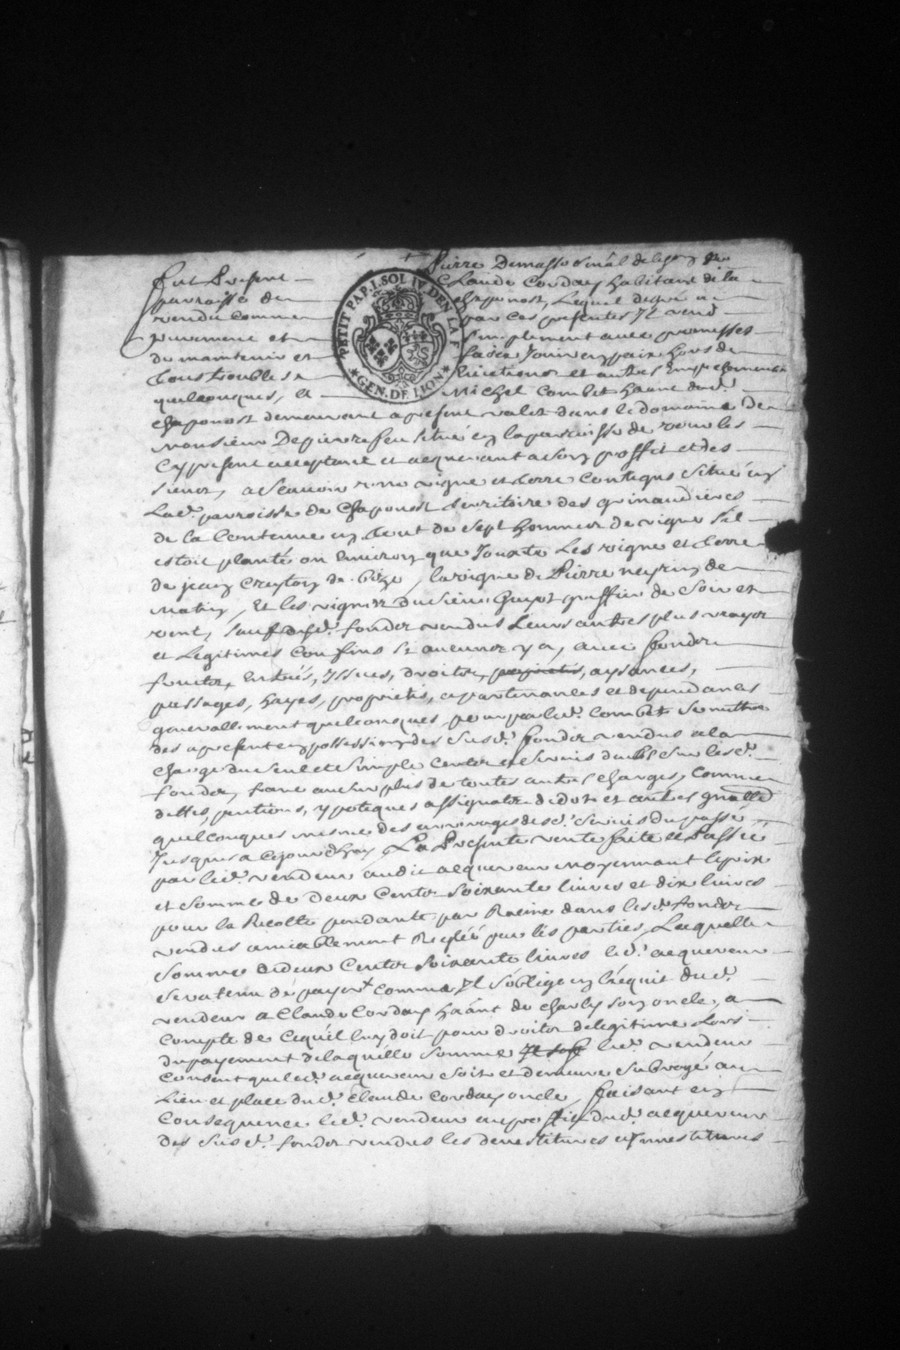 PETIT PAP. I. SOL IV DEN LA F
GEN. DE LION
Fut Present Pierre
Claude Corday habitant de la
parroisse de chaponost, Lequel de gré a
vendu comme par ces presentes Il vend
purement et simplement avec promesses
de maintenir et faire Jouir en paix hors de
tous troubles et Evictions et autres Empechements
quelconques, a Michel Combet haant dud.
chaponost demeurant a present valet dans le domaine de
Monsieur Depierrefeu situé en la parroisse de
Cy present acceptant et acquerant a son proffit et des
siens, a Scavoir une vigne et terre contigus Situé en
Lad. parroisse de Chaponost territoire des
de la Contenue en tout de Sept hommes de vigne s'il
estoit planté ou Environ que Jouxte Les vigne et terre
de jean la vigne de Pierre
Et les vignes du sieur Guyot greffier de Soir et
vent, sauf desd. fonder vendus Leurs autres plus vrayes
et Legitimes Confins Si aucunes y a, avec fonder
Entrées, Yssues, droits, proprietés, aysances,
passages, hayes, proprietés, apartenances et dependances
generallement quelconques, pour par led. Combet Se mettre
des apresent en possession des Susd. fonder vendus a la
charge du seul et simple Center et Servis dub Sur lesd.
fonder, franc au surplus de toutes autres charges, Comme
dettes, pentions, ypoteques assignats de dote et autres gnalles
quelconques mesme des arrerages desd. Servis du passé
Jusques a Cejourdhuy La Presente vente faite et Passée
par led. vendeur audit acquereur moyennant le prix
et somme de Deux Cents Soixante livres et dix livres
pour la Recolte pendante par Racine dans lesd. fonder
vendus amiablement Reglés par les parties, Laquelle
somme de deux Cents Soixante livres led. acquereur
Sera tenu de payer comme Il s'oblige en l'acquit dud.
vendeur a Claude Corday haant de Charly son oncle, a
Compte de Cequ'il luy doit pour droits de legitime Lors
du payement de laquelle somme led. vendeur
Consent que led. acquereur Soit et demeure Subrogé au
Lieu et place dud. Claude Corday oncle, faisant en
Consequence led. vendeur au proffit dud. acquereur
des Susd. fonder vendus les devestitures et Investitures